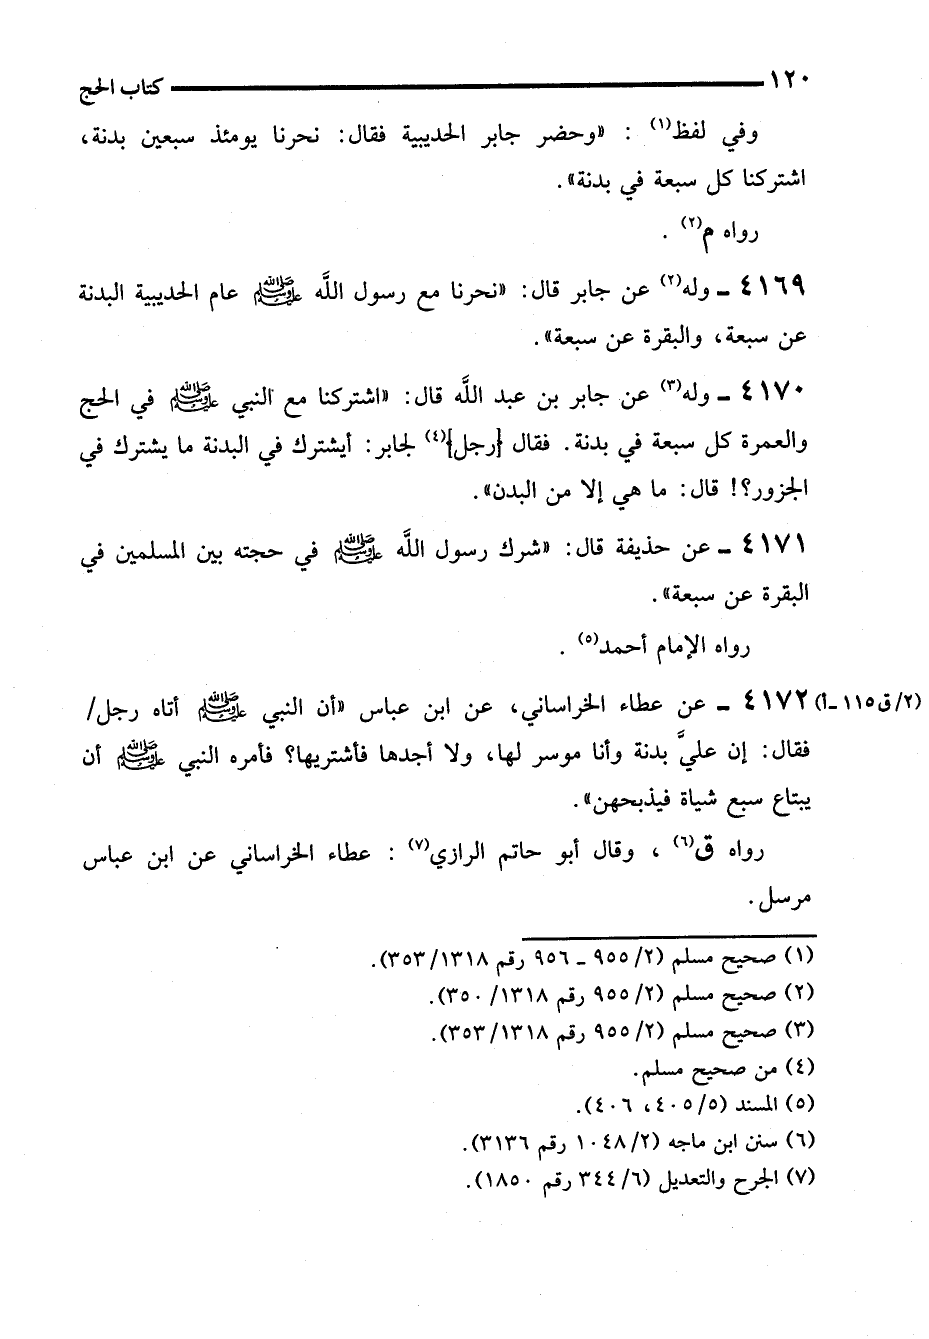 ١٢٠ كتاب الحج
وفي لفظ(١) : «وحضر جابر الحديبية فقال: نحرنا يومئذ سبعين بدنة،
اشتركنا كل سبعة في بدنة».
رواه م(٢) .
٤١٦٩ ـ وله(٢) عن جابر قال: «نحرنا مع رسول اللَّه ﷺ عام الحديبية البدنة
عن سبعة، والبقرة عن سبعة».
٤١٧٠ ـ وله(٣) عن جابر بن عبد اللَّه قال: «اشتركنا مع النبي ﷺ في الحج
والعمرة كل سبعة في بدنة. فقال {رجل}(٤) لجابر: أيشترك في البدنة ما يشترك في
الجزور؟! قال: ما هي إلا من البدن».
٤١٧١ ـ عن حذيفة قال: «شرك رسول اللَّه ﷺ في حجته بين المسلمين في
البقرة عن سبعة».
رواه الإمام أحمد(٥) .
(٢/ق١١٥ـأ) ٤١٧٢ ـ عن عطاء الخراساني، عن ابن عباس «أن النبي ﷺ أتاه رجل/
فقال: إن عليَّ بدنة وأنا موسر لها، ولا أجدها فأشتريها؟ فأمره النبي ﷺ أن
يبتاع سبع شياة فيذبحهن».
رواه ق(٦) ، وقال أبو حاتم الرازي(٧) : عطاء الخراساني عن ابن عباس
مرسل.
(١) صحيح مسلم (٢/ ٩٥٥ ـ ٩٥٦ رقم ١٣١٨/ ٣٥٣).
(٢) صحيح مسلم (٢/ ٩٥٥ رقم ١٣١٨/ ٣٥٠).
(٣) صحيح مسلم (٢/ ٩٥٥ رقم ١٣١٨/ ٣٥٣).
(٤) من صحيح مسلم.
(٥) المسند (٥/ ٤٠٥، ٤٠٦).
(٦) سنن ابن ماجه (٢/ ١٠٤٨ رقم ٣١٣٦).
(٧) الجرح والتعديل (٦/ ٣٤٤ رقم ١٨٥٠).